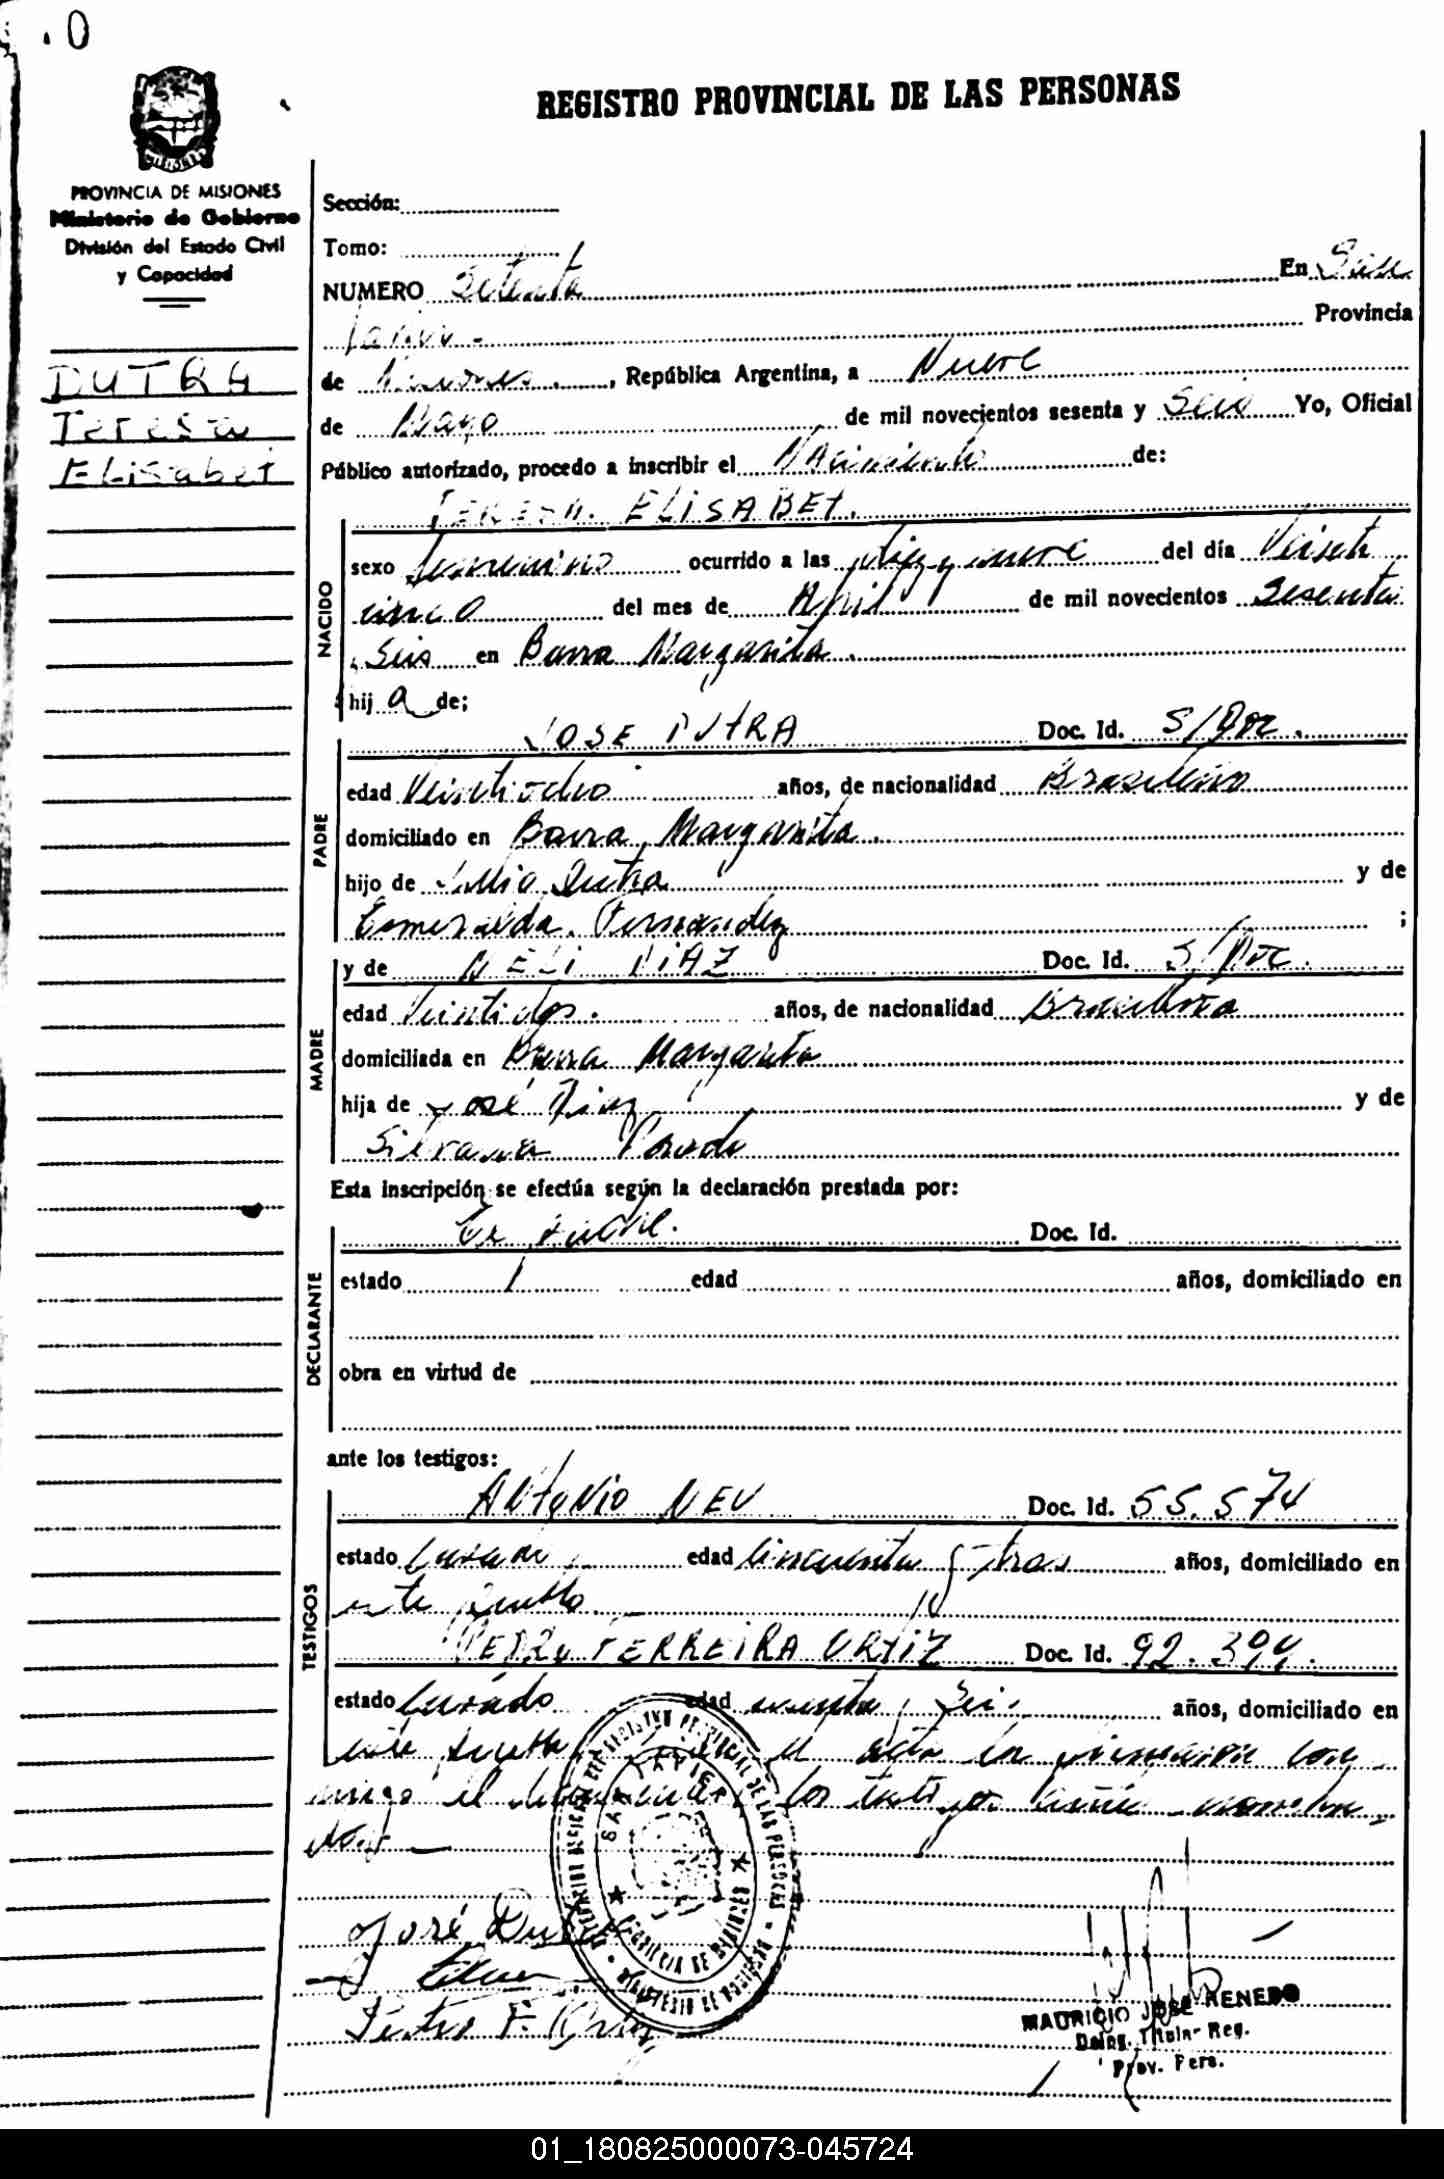 0
REGISTRO PROVINCIAL DE LAS PERSONAS
PROVINCIA DE MISIONES
Ministerio de Gobierno
División del Estado Civil
y Capacidad
DUTRA
Teresa
Elisabet
Sección:
Tomo:
NUMERO Setenta En San
Javier - Provincia
de Misiones, República Argentina, a Nueve
de Mayo de mil novecientos sesenta y Seis Yo, Oficial
Público autorizado, procedo a inscribir el Nacimiento de:
TERESA ELISABET.
NACIDO
sexo femenino ocurrido a las diez y nueve del día Veinti
cinco del mes de Abril de mil novecientos Sesenta
y Seis en Barra Margarita.
hij a de;
PADRE
JOSE DUTRA Doc. Id. S/Doc.
edad Veintiocho años, de nacionalidad Brasileño
domiciliado en Barra Margarita.
hijo de Julio Dutra y de
Esmeralda Fernandez ;
MADRE
y de NELI DIAZ Doc. Id. S/Doc.
edad Veintidos. años, de nacionalidad Brasileña
domiciliada en Barra Margarita
hija de José Diaz y de
Silvana
Esta inscripción se efectúa según la declaración prestada por:
DECLARANTE
El Padre. Doc. Id.
estado edad años, domiciliado en
obra en virtud de
ante los testigos:
TESTIGOS
ANTONIO NEU Doc. Id. 55.574
estado Casado edad Cincuenta y tres años, domiciliado en
este pueblo
PEDRO FERREIRA ORTIZ Doc. Id. 92.394.
estado Casado edad y Seis años, domiciliado en
este pueblo el acta la firmaron con
migo el declarante y los testigos
dos. -
REGISTRO PROVINCIAL DE LAS PERSONAS
SAN JAVIER
PROVINCIA DE MISIONES
MINISTERIO DE GOBIERNO
José Dutra
Pedro F. Ortiz
MAURICIO JOSE RENEDO
Deleg. Titular Reg.
Prov. Pers.
01_180825000073-045724